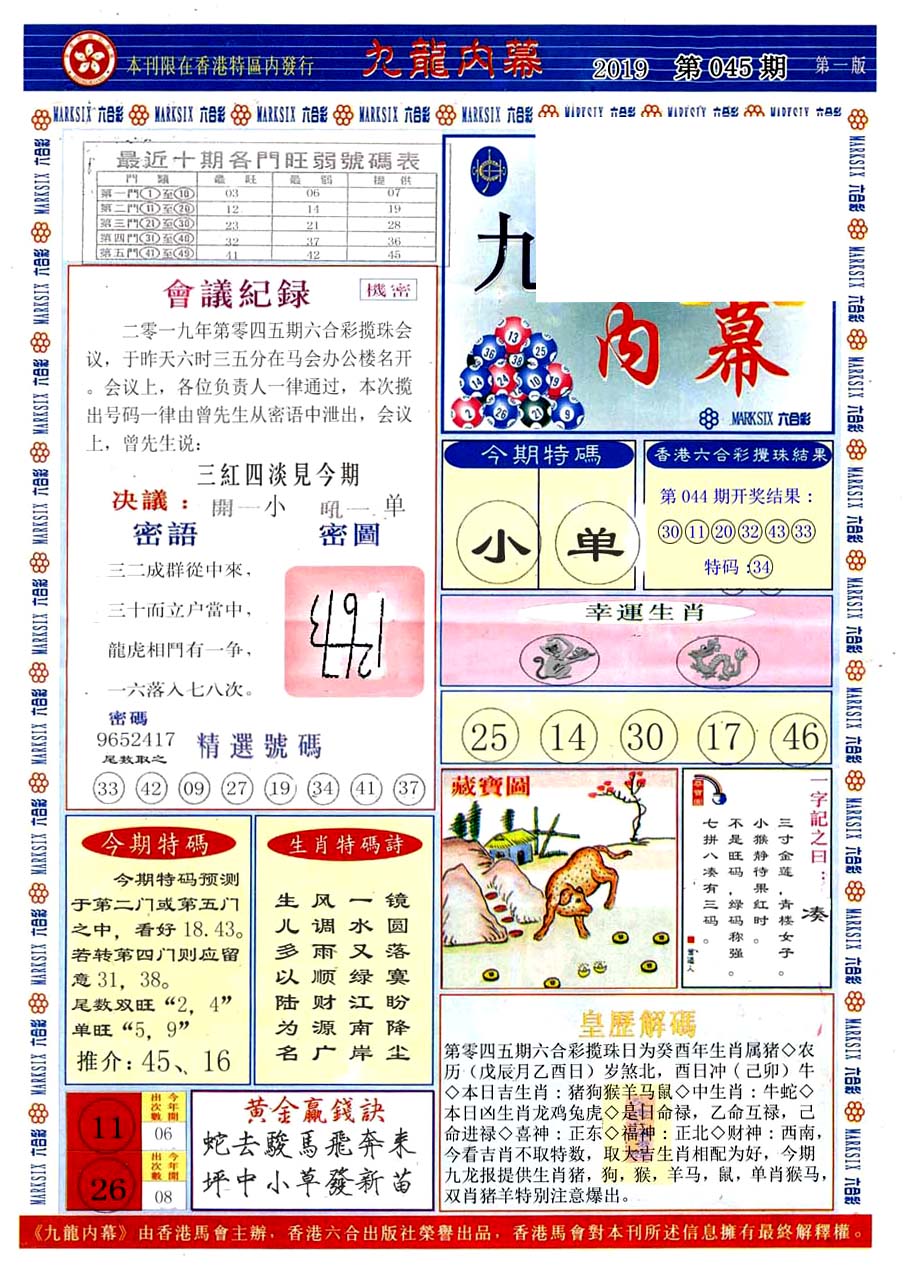 本刊限在香港特區內發行
九龍内幕
2019 第045期
第一版
MARKSIX 六合彩
最近十期各門旺弱號碼表
門類 最旺 最弱 提供
第一門①至⑩ 03 06 07
第二門⑪至⑳ 12 14 19
第三門㉑至㉚ 23 21 28
第四門㉛至㊵ 32 37 36
第五門㊶至㊾ 41 42 45
會議紀録
機密
二零一九年第零四五期六合彩揽珠会
议，于昨天六时三五分在马会办公楼名开
。会议上，各位负责人一律通过，本次揽
出号码一律由曾先生从密语中泄出，会议
上，曾先生说：
三紅四淡見今期
决議：開一小 吼一单
密語
密圖
三二成群從中來，
三十而立户當中，
龍虎相鬥有一争，
一六落入七八次。
密碼
9652417
尾数取之
精選號碼
33 42 09 27 19 34 41 37
九
内幕
13
36 38 25
14 24 10 19
2 26 21 9
MARKSIX 六合彩
今期特碼
小 单
香港六合彩攪珠結果
第044期开奖结果：
30 11 20 32 43 33
特码：34
幸運生肖
25 14 30 17 46
藏寶圖
一字記之曰：湊
三寸金莲，青楼女子。
小猴静待果红时。
不是旺码，绿码称强。
七拼八凑有三码。
曾道人
今期特碼
今期特码预测
于第二门或第五门
之中，看好18.43。
若转第四门则应留
意31，38。
尾数双旺“2，4”
单旺“5，9”
推介：45、16
生肖特碼詩
镜圆落寞盼降尘
一水又绿江南岸
风调雨顺财源广
生儿多以陆为名
皇歷解碼
第零四五期六合彩揽珠日为癸酉年生肖属猪◇农
历（戊辰月乙酉日）岁煞北，酉日冲（己卯）牛
◇本日吉生肖：猪狗猴羊马鼠◇中生肖：牛蛇◇
本日凶生肖龙鸡兔虎◇是日命禄，乙命互禄，己
命进禄◇喜神：正东◇福神：正北◇财神：西南，
今看吉肖不取特数，取大吉生肖相配为好，今期
九龙报提供生肖猪，狗，猴，羊马，鼠，单肖猴马，
双肖猪羊特别注意爆出。
11
今年開出次數
06
26
今年開出次數
08
黄金贏錢訣
蛇去駿馬飛奔来
坪中小草發新苗
《九龍内幕》由香港馬會主辦，香港六合出版社榮譽出品，香港馬會對本刊所述信息擁有最終解釋權。